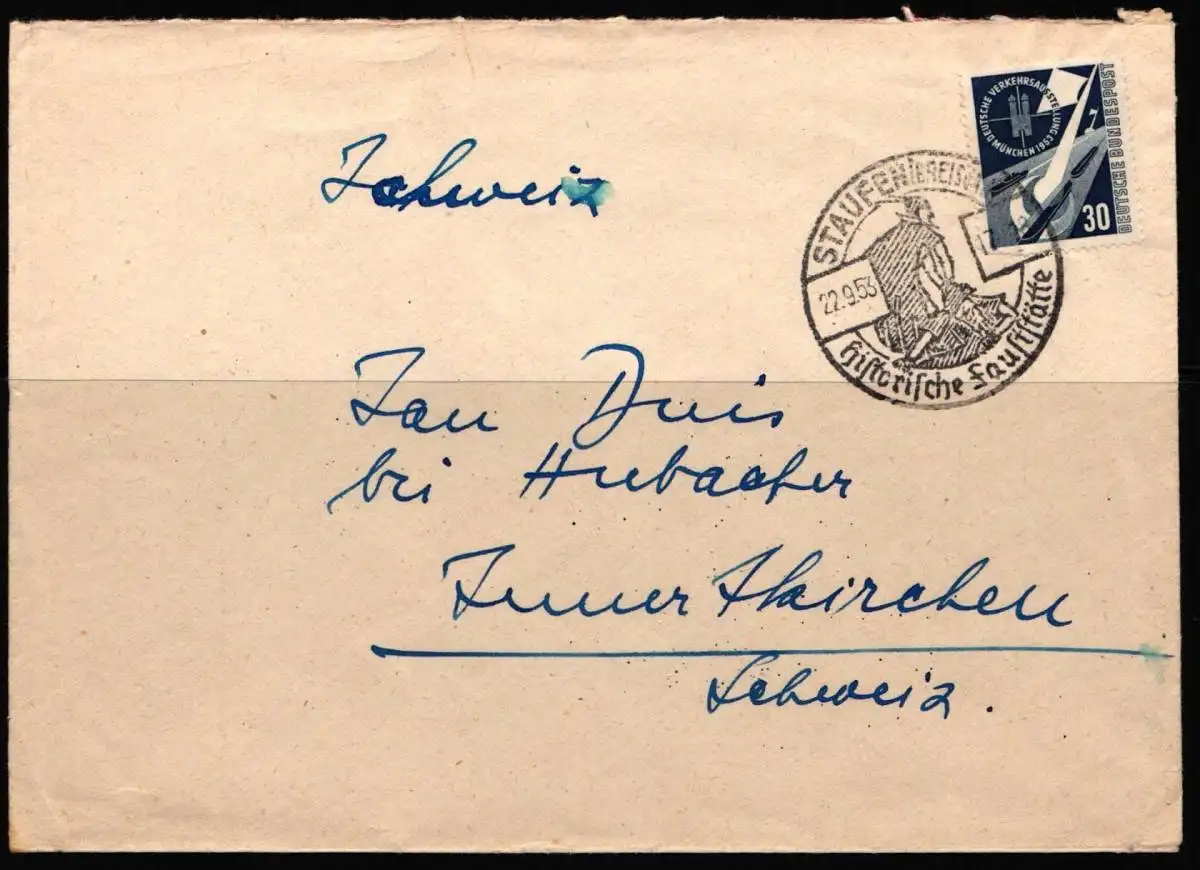 Schweiz
DEUTSCHE VERKEHRSAUSSTELLUNG
MÜNCHEN 1953
DEUTSCHE BUNDESPOST
30
STAUFEN (BREISG
22.9.53
historische Fauststätte
Jan Duis
bei Hubacher
Innertkirchen
Schweiz.